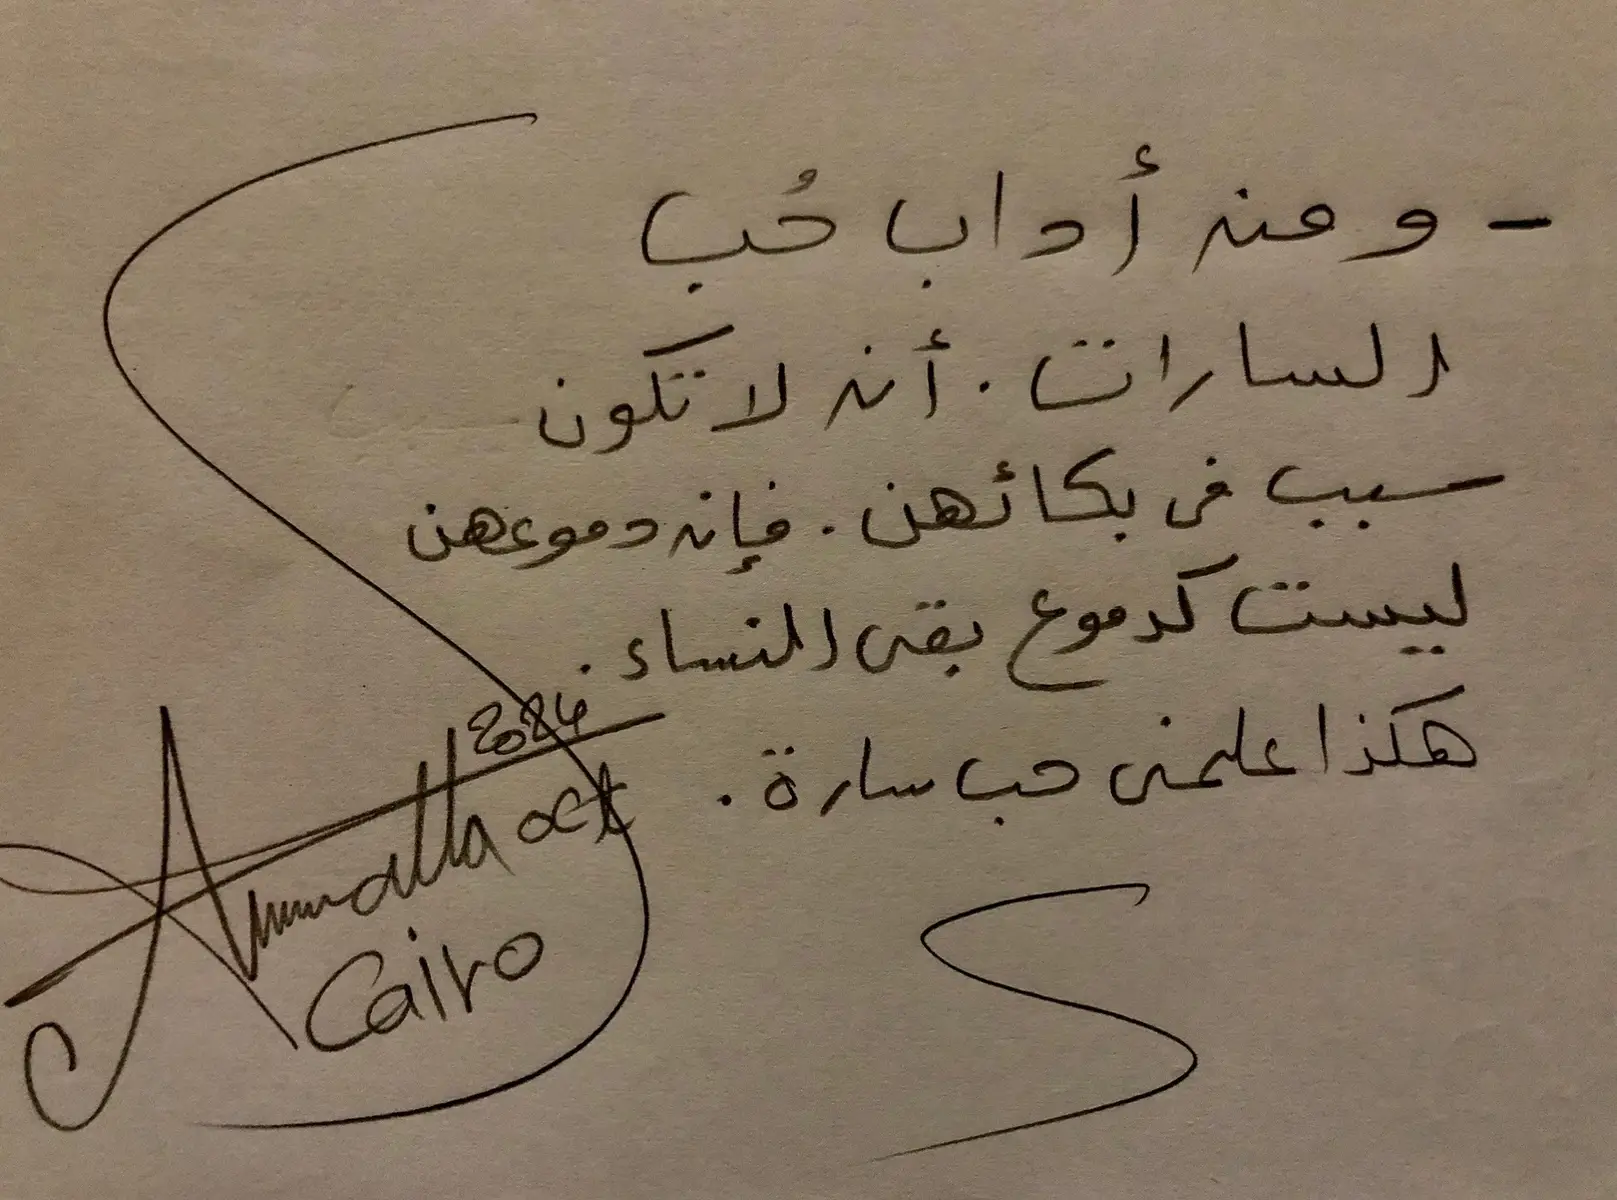 - ومن أداب حُب
السارات . أن لا تكون
سبب فى بكائهن . فإن دموعهن
ليست كدموع بقى النساء .
هكذا علمنى حب سارة .
2024
Cairo